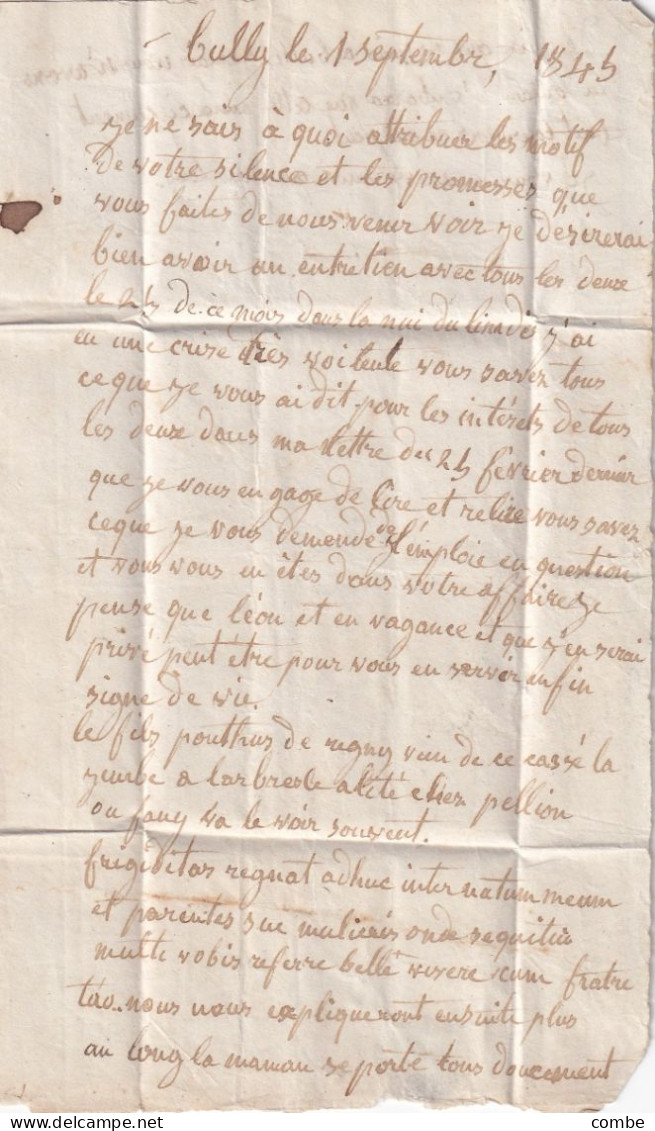 Cully le 1 septembre, 1845
je ne sais à quoi attribuer les motif
de votre silence et les promesses que
vous faites de nous venir voir je désirerai
bien avoir un entretien avec tous les deux
le 25 de ce mois dans la nui du j'ai
eu une crise très vous savez tous
ce que je vous ai dit pour les intérets de tous
les deux dans ma lettre du 25 février dernier
que je vous engage de lire et relire vous savez
ceque je vous demende de l'emploie en question
et vous vous en êtes dans votre affaire je
pense que léon et en vagance et que j'en serai
privé peut être pour vous en servir enfin
signe de vie.
le fils pouthus de regny vien de ce cassé la
jembe a larbresle alité chez pellion
ou fany va le voir souvent.
frigiditas regnat adhuc inter natum meum
et parentes suæ mulieris onde sequitur
multi vobis referre bellè vivere cum fratre
tuo.. nous nous expliqueront ensuite plus
au long la maman se porte tous doucement
combe